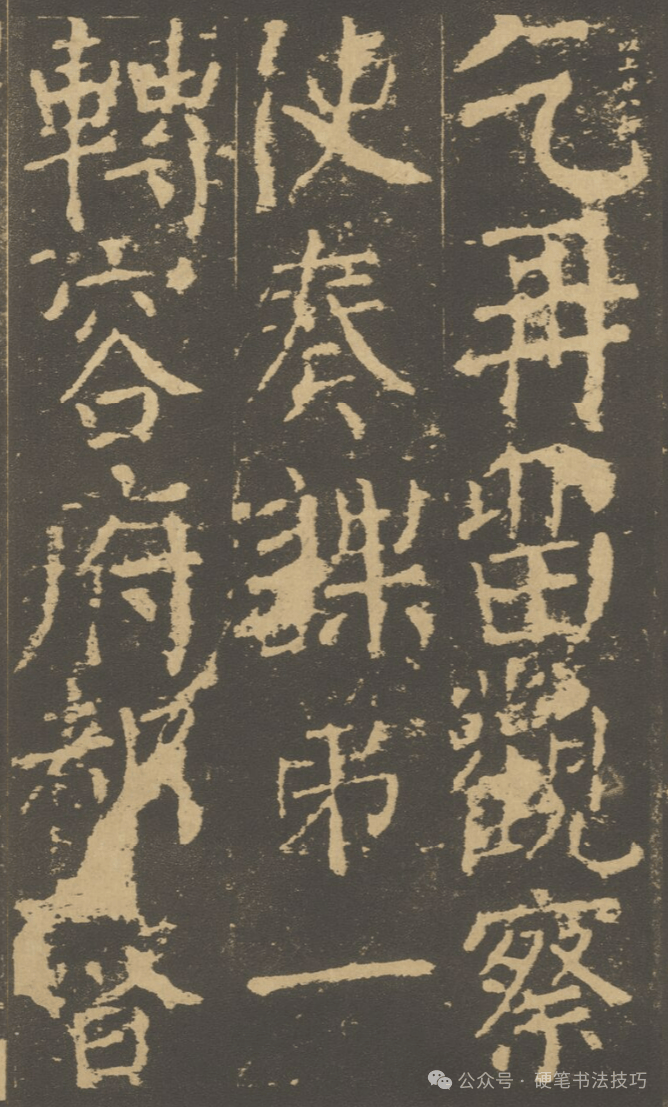 以上廿八
乞再留觀察
使奏課弟一
轉容府都督
公众号 · 硬笔书法技巧